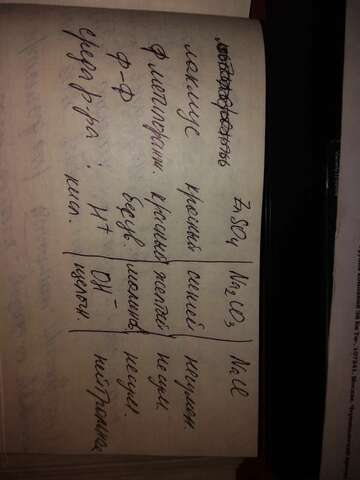 ZnSO4 | Na2CO3 | NaCl
лакмус красный синий неизмен.
ф метилоранж. красный желтый неизм.
Ф-Ф безцв. малинов неизм.
среда р-ра: H+ OH-
кисл. щелочн. нейтральна